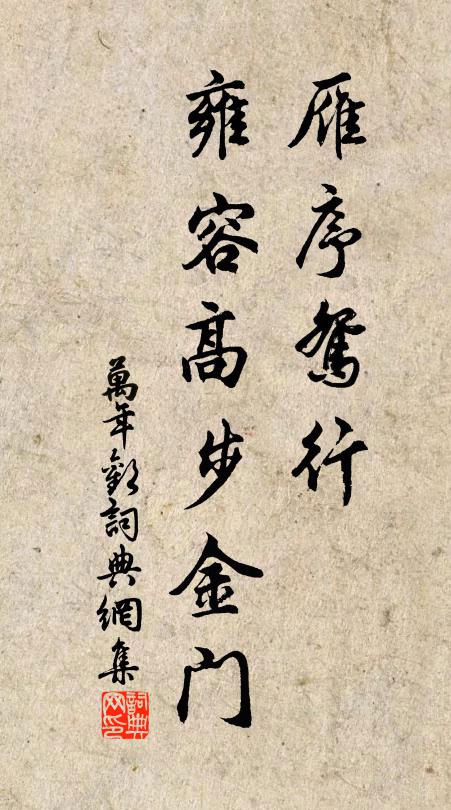 雁序鴛行
雍容高步金門
萬年歡詞典網集
詞典网印